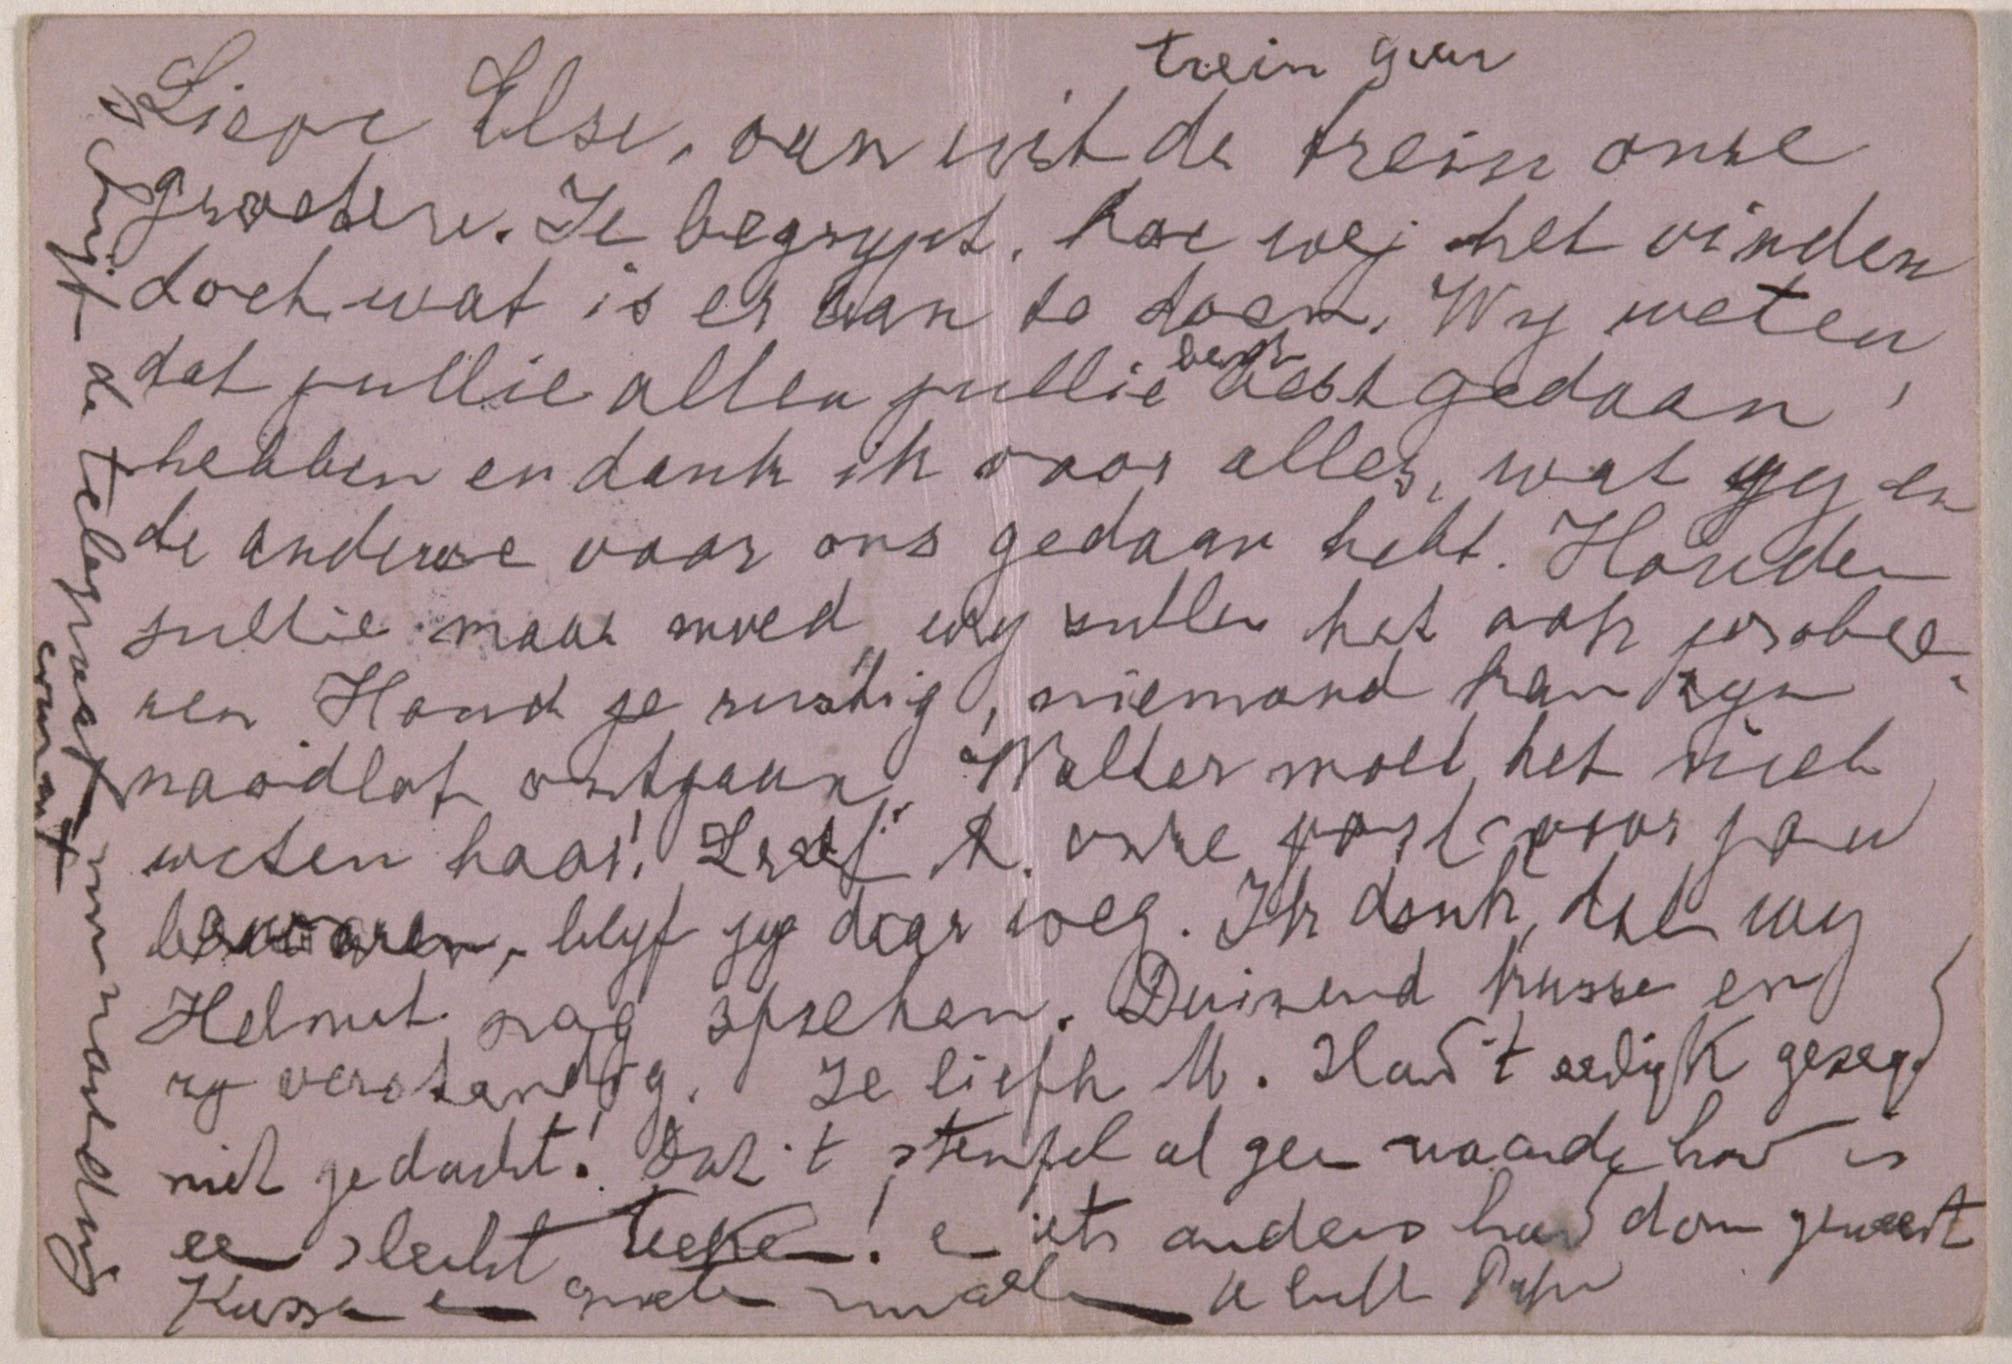 trein
Lieve Else, van uit de trein onze
groeten. Je begrypt, hoe wij het vinden
doch wat is er aan te doen. Wy weten,
dat jullie allen jullie best best gedaan
hebben en dank ik voor alles, wat gy en
de andere voor ons gedaan hebt. Houden
jullie maar moed, wy zullen het ook probee-
ren Houd je rustig, niemand kan zyn
noodlot ontgaan. Walter moet het niet
weten hoor! onze post voor jou
bewaren, blyf jy daar weg. Ik denk, dat wy
Helmut nog spreken. Duizend kusse en
zy verstandig. Je liefh M. Had 't eerlijk gezegd
niet gedacht! Dat 't stempel al geen waarde had is
een slecht teeken! en iets anders had dom geweest
Kusse en groeten van allen Je liefh Papa
Schrijf de telegraaf
courant